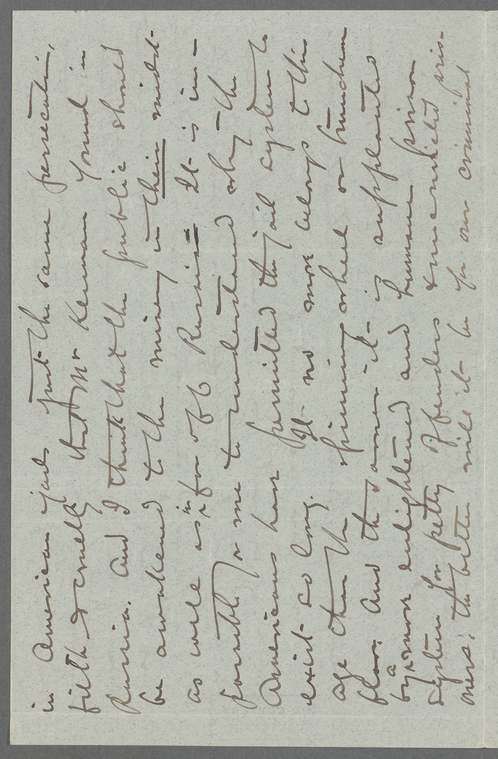 in American jails just the same persecution,
filth & cruelty that Mr Kennan found in
Russia. And I think that the public should
be awakened to the misery in their midst
as well as in far off Russia. It is im-
possible for me to understand why the
Americans have permitted the jail system to
exist so long. It no more belongs to this
age than the spinning wheel or truncheon
flow. And the sooner it is supplanted
by a more enlightened and humane prison
system for petty offenders & unconvicted pris-
oners, the better will it be for our criminal